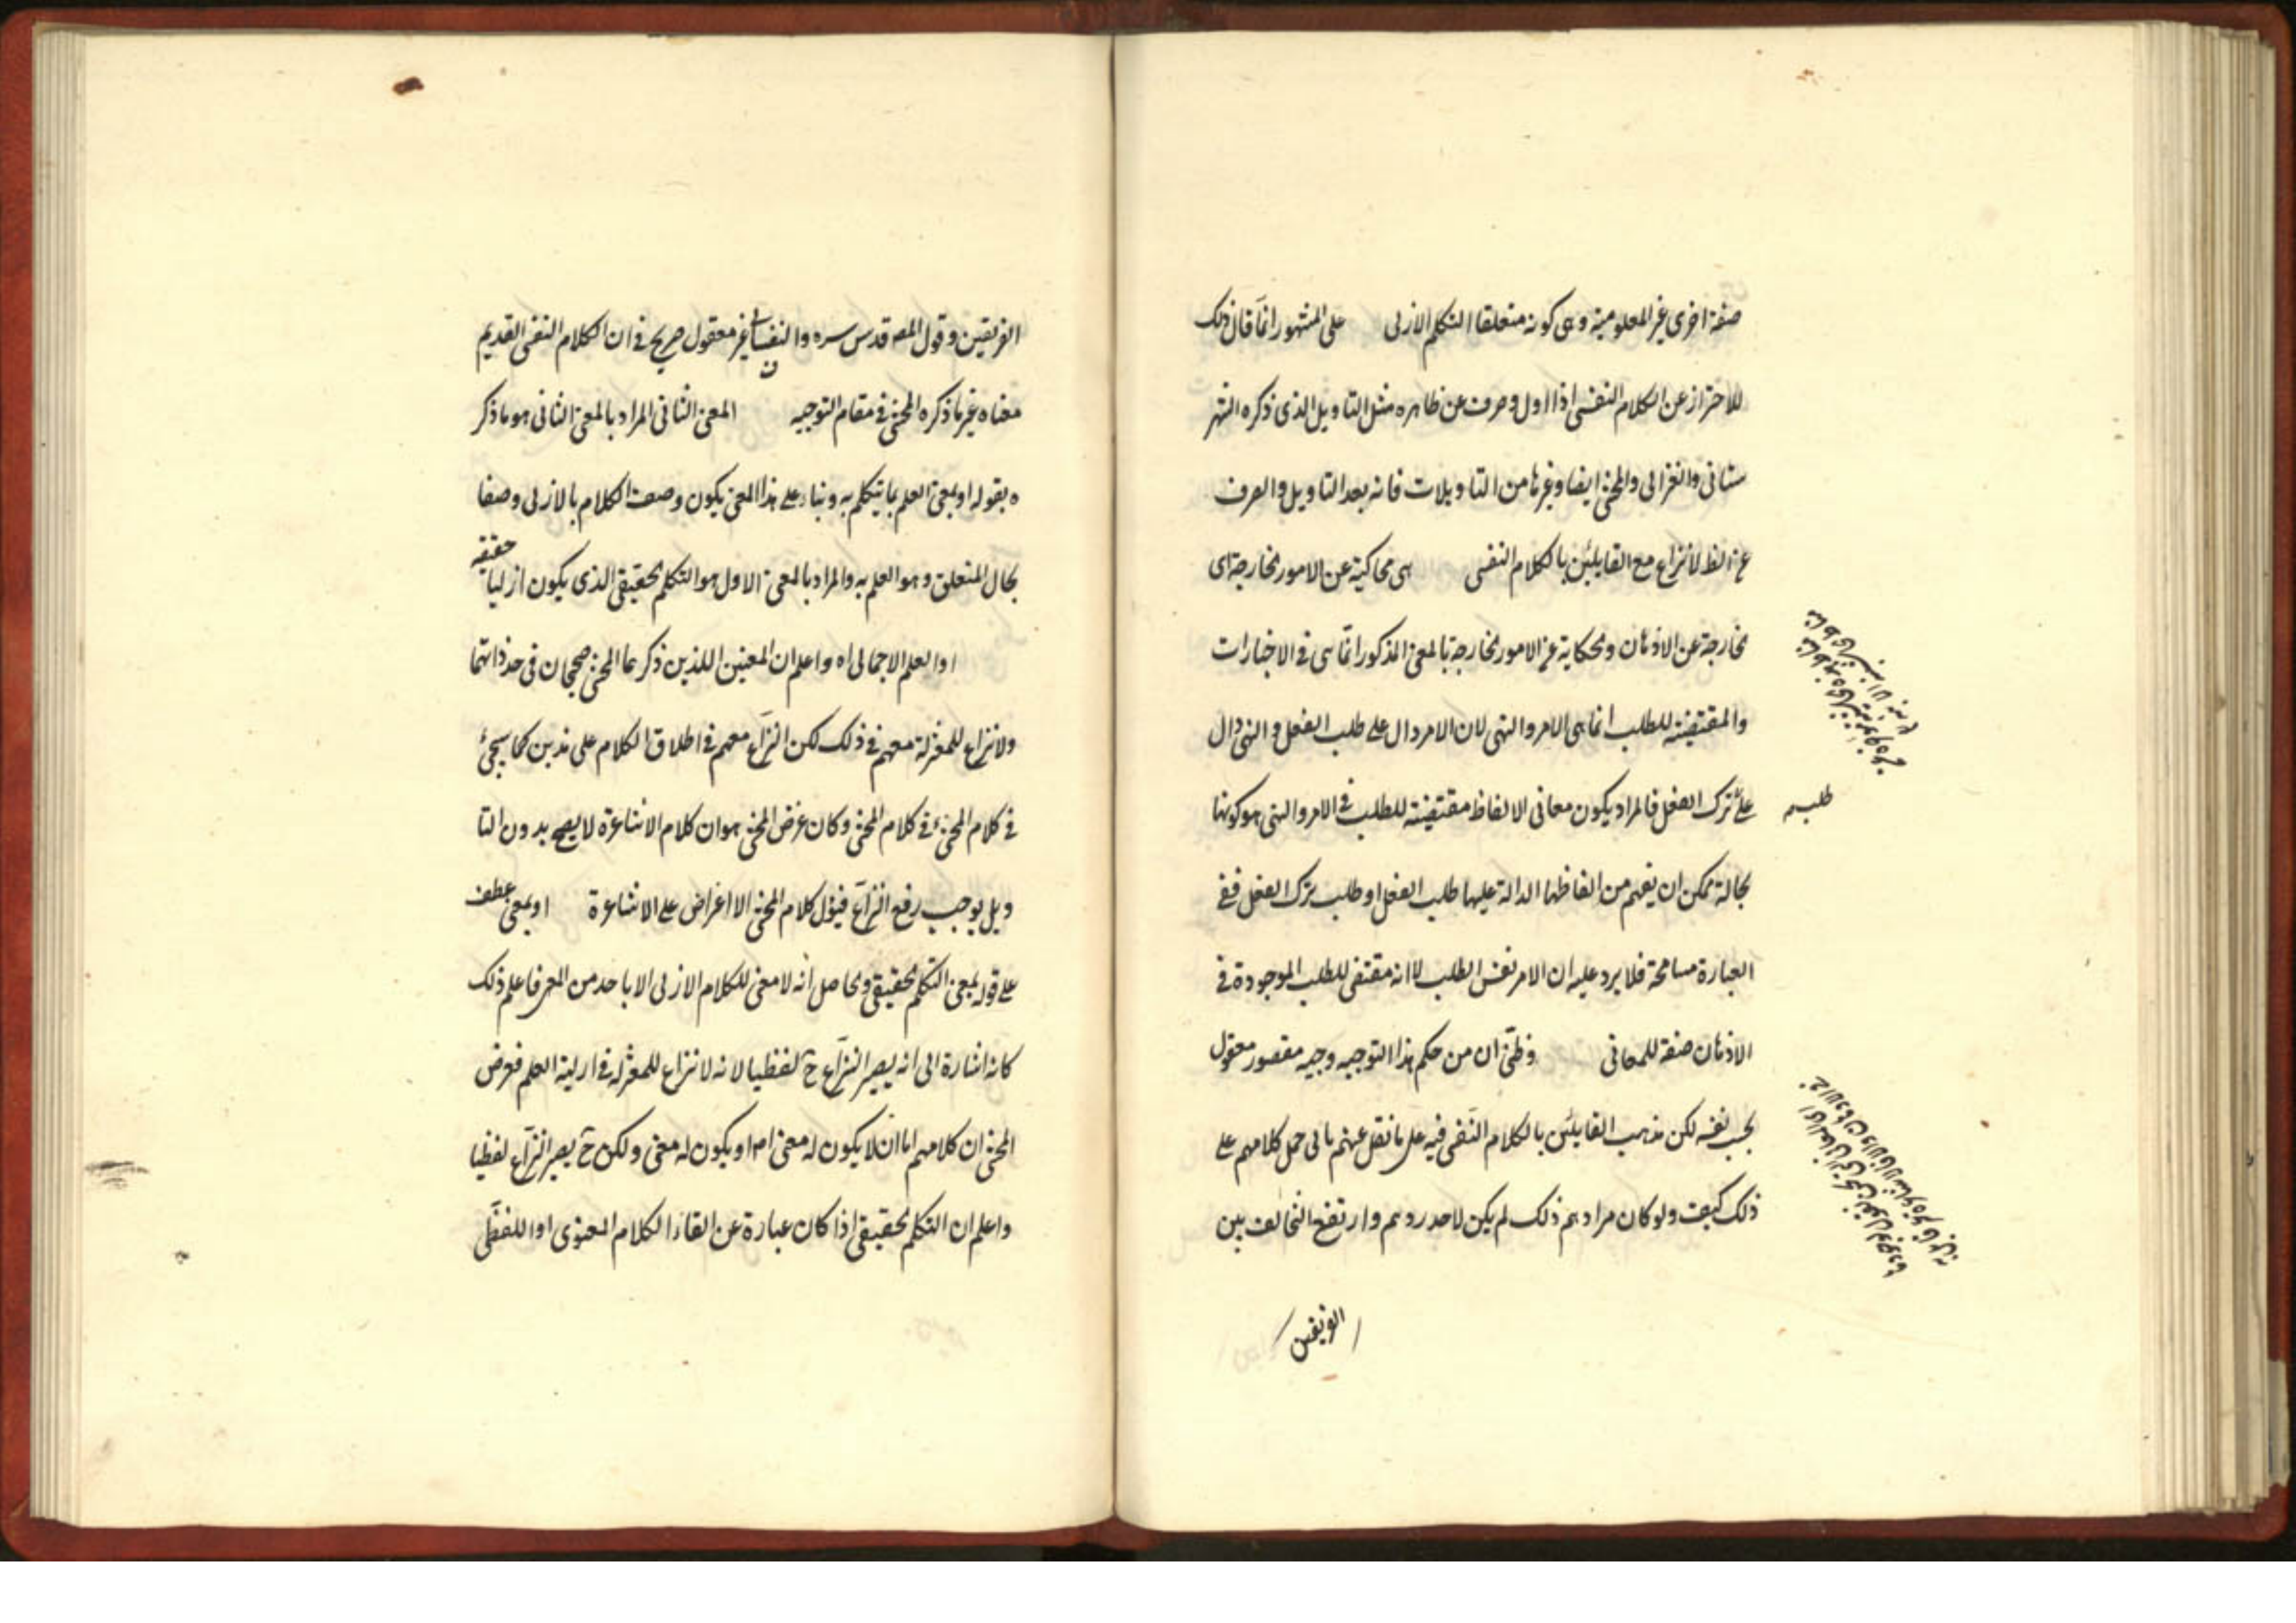 صفة اخرى غير المعلومية وهى كونه متعلقا التكلم الازلى على المشهور انما قال ذلك
للاحتراز عن الكلام النفسى اذا اول وصرف عن ظاهره مثل التاويل الذى ذكره الشهر
ستانى والغزالى والمحشى ايضا وغيرها من التاويلات فانه بعد التاويل والصرف
عن الظ لانزاع مع القايلين بالكلام النفسى هى محاكية عن الامور الخارجة اى
الخارجة عن الاذهان والحكاية عن الامور الخارجة بالمعنى المذكور انما هى فى الاخبارات
والمقتضية للطلب انما هى الامر والنهى لان الامر دال على طلب الفعل والنهى دال
على ترك الفعل فالمراد يكون معانى الالفاظ مقتضية للطلب فى الامر والنهى هو كونها
طلب
بحالة يمكن ان يفهم من الفاظها الدالة عليها طلب الفعل او طلب ترك الفعل ففى
العبارة مسامحة فلا يرد عليه ان الامر نفس الطلب لا انه مقتضى للطلب الموجودة فى
الاذهان صفة للمعانى وظنى ان من حكم هذا التوجيه وجيه مقصور معقول
بحسب نفسه لكن مذهب القايلين بالكلام النفسى فيه على ما نقل عنهم يابى حمل كلامهم على
ذلك كيف ولو كان مرادهم ذلك لم يكن لاحد ردهم وارتفع التخالف بين
الفريقين
الفريقين وقول المص قدس سره والنفسانى غير معقول صريح فى ان الكلام النفسى القديم
معناه غير ما ذكره المحشى فى مقام التوجيه المعنى الثانى المراد بالمعنى الثانى هو ما ذكر
ه بقوله او بمعنى العلم بما يتكلم به وبناء على هذا المعنى يكون وصف الكلام بالازلى وصفا
بحال المتعلق وهو العلم به والمراد بالمعنى الاول هو التكلم الحقيقى الذى يكون ازليا حقيقه
او العلم الاجمالى اه واعلم ان المعنيين اللذين ذكرهما المحشى صحيحان فى حد ذاتهما
ولانزاع للمعتزلة معهم فى ذلك لكن النزاع معهم فى اطلاق الكلام على هذين كما سيجئ
فى كلام المحشى فى كلام المحشى وكان غرض المحشى هو ان كلام الاشاعرة لا يصح بدون التا
ويل يوجب رفع النزاع فيؤل كلام المحشى الا اعراض على الاشاعرة او بمعنى عطف
على قوله بمعنى التكلم الحقيقى والحاصل انه لا معنى للكلام الازلى الا باحد من المعنى فاعلم ذلك
كانه اشارة الى انه يصير النزاع ح لفظيا لانه لا نزاع للمعتزله فى ازلية العلم فغرض
المحشى ان كلامهم اما ان لا يكون له معنى اصلا او يكون له معنى ولكن ح يصير النزاع لفظيا
واعلم ان التكلم الحقيقى اذا كان عبارة عن القاء الكلام المعنوى او اللفظى